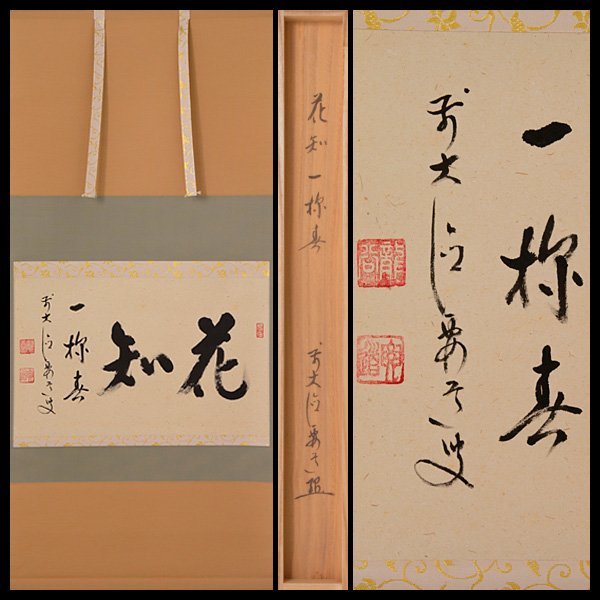 花知
一様春
前大徳要道叟
花知一様春
前大徳要道題
一様春
前大徳要道叟